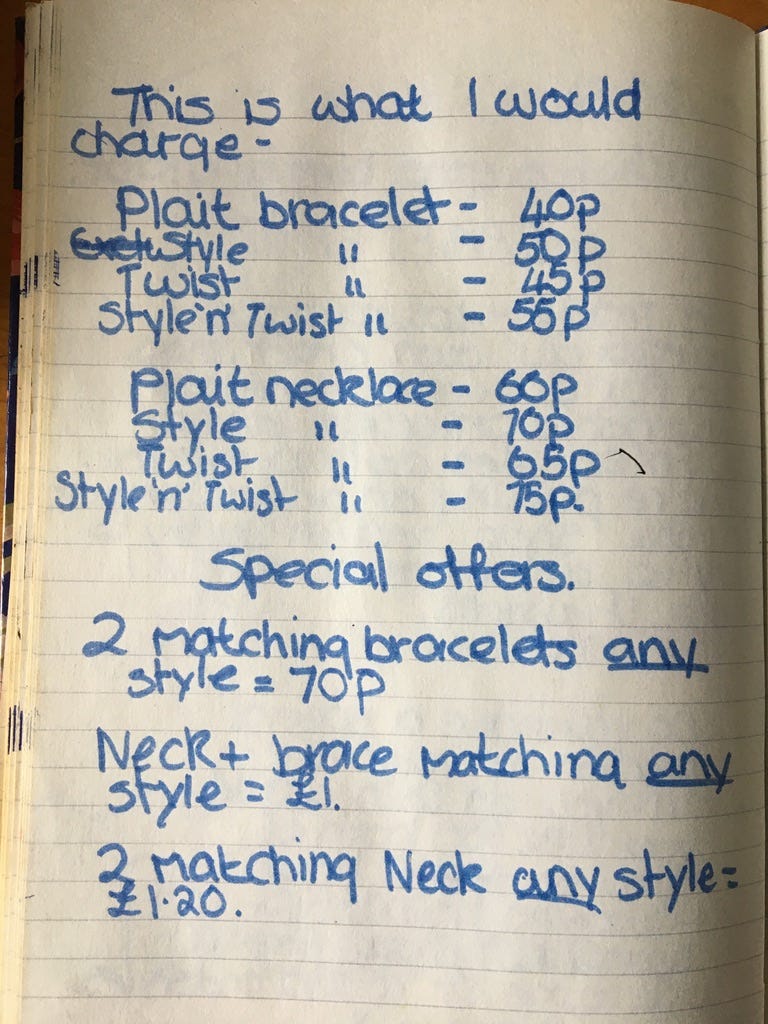 This is what I would
charge -
Plait bracelet - 40p
Style " - 50p
Twist " - 45p
Style 'n' Twist " - 55p
Plait necklace - 60p
Style " - 70p
Twist " - 65p
Style 'n' Twist " - 75p.
Special offers.
2 matching bracelets any
style = 70p
Neck + brace matching any
style = £1.
2 matching Neck any style =
£1.20.